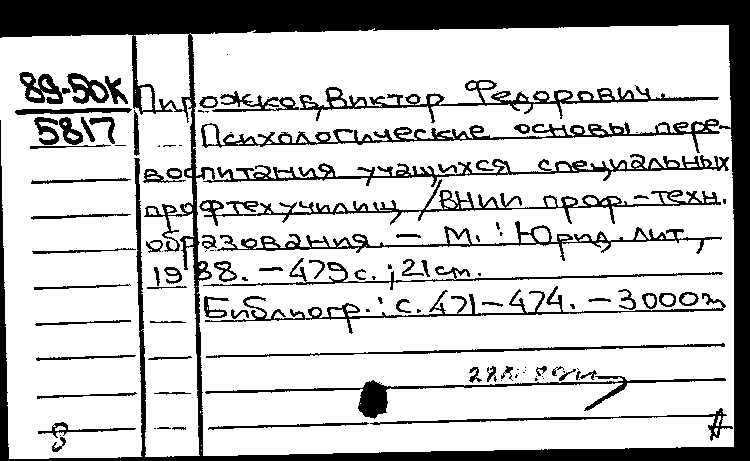 89-50К
5817
Пирожков, Виктор Федорович.
Психологические основы пере-
воспитания учащихся специальных
профтехучилищ /ВНИИ проф.-техн.
образования. – М. : Юрид. лит.,
1988. – 479 с. ; 21 см.
Библиогр.: с. 471–474. – 3000
8